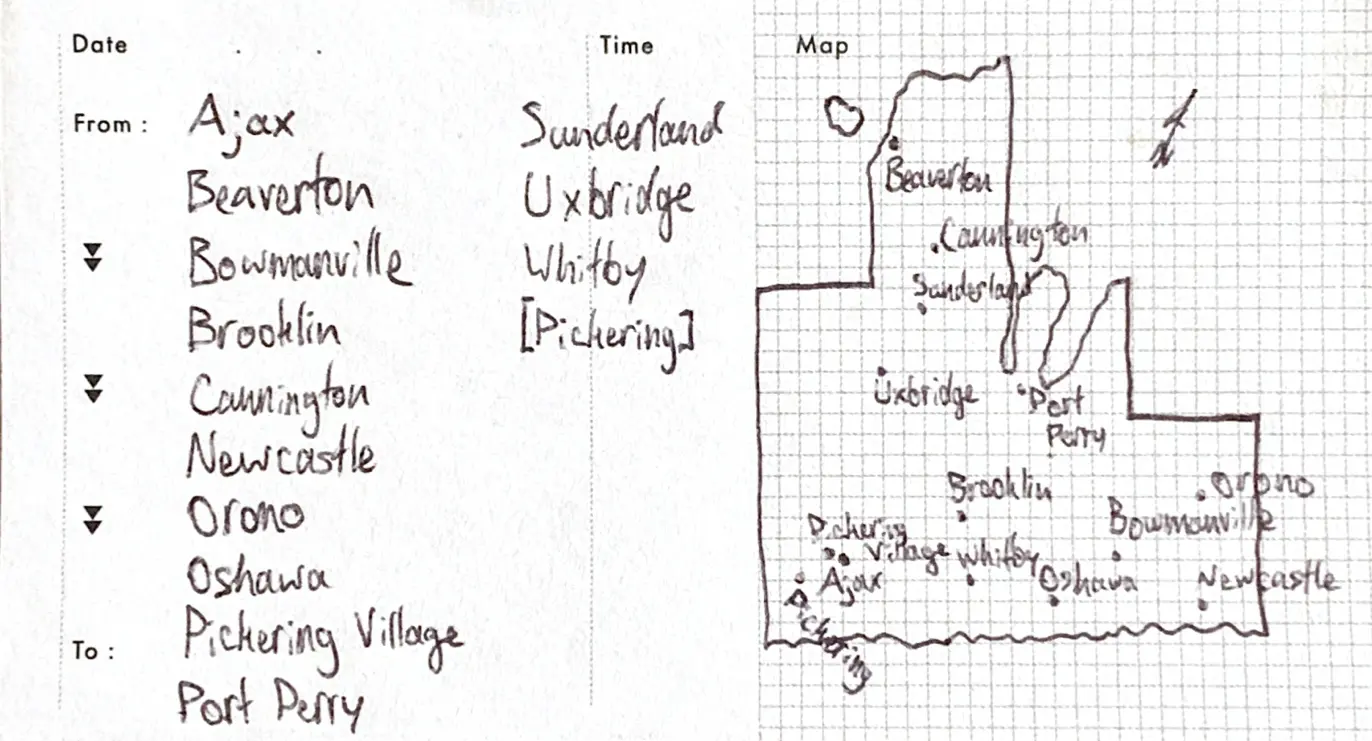 Date
Time
Map
From :
Ajax
Beaverton
Bowmanville
Brooklin
Cannington
Newcastle
Orono
Oshawa
Pickering Village
To :
Port Perry
Sunderland
Uxbridge
Whitby
[Pickering]
Beaverton
Cannington
Sunderland
Uxbridge
Port
Perry
Brooklin
Orono
Bowmanville
Pickering
Village
Whitby
Ajax
Oshawa
Newcastle
Pickering